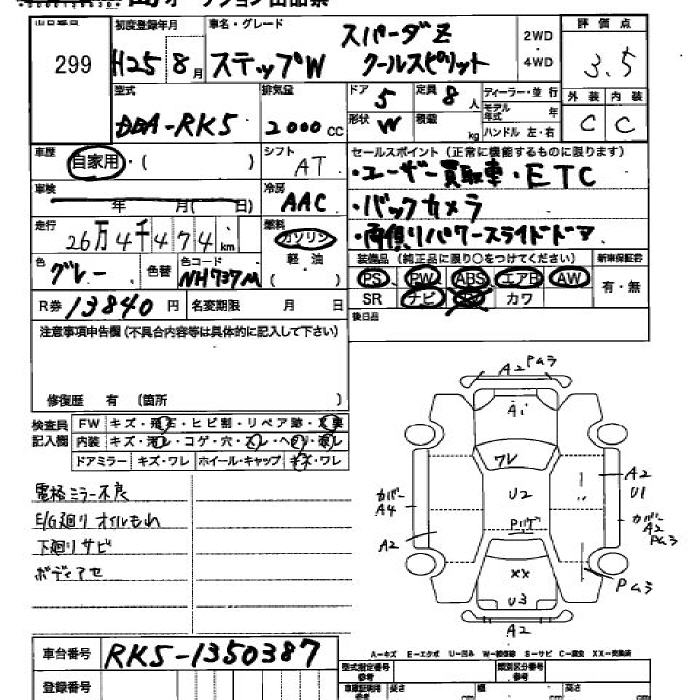 オークション出品票
出品番号 299
初度登録年月 H25 8月
車名・グレード スパーダZ
ステップW クールスピリット
2WD
・
4WD
評価点 3.5
型式 DBA-RK5
排気量 2000 CC
ドア 5 定員 8人 ディーラー・並行
形状 W 積載 kg モデル年式 年
ハンドル 左・右
外装 内装
C C
車歴 自家用・( )
シフト AT
車検 年 月( 日)
冷房 AAC
走行 26万4千474km
燃料 ガソリン
軽油
( )
色 グレー 色替 色コード NH737M
R券 13840円 名変期限 月 日
セールスポイント(正常に機能するものに限ります)
・ユーザー買取車・ETC
・バックカメラ
・両側パワースライドドア
装備品(純正品に限り○をつけてください) 新車保証書
PS PW ABS エアB AW 有・無
SR ナビ カワ
後日品
注意事項申告欄(不具合内容等は具体的に記入して下さい)
修復歴 有 (箇所 )
検査員記入欄
FW キズ・飛石・ヒビ割・リペア跡・
内装 キズ・汚レ・コゲ・穴・スレ・
ドアミラー キズ・ワレ ホイール・キャップ キズ・ワレ
電格ミラー不良
E/G廻りオイルもれ
下廻りサビ
ボディアセ
A2 Pムラ
A1
ワレ
U2
カバー
A4
A2
A2
U1
カバー
A2
Pムラ
Pムラ
XX
U3
A2
A-キズ E-エクボ U-凹み W-補修跡 S-サビ C-腐食 XX-交換済
車台番号 RK5-1350387
登録番号
型式指定番号 類別区分番号
長さ cm 幅 cm 高さ cm